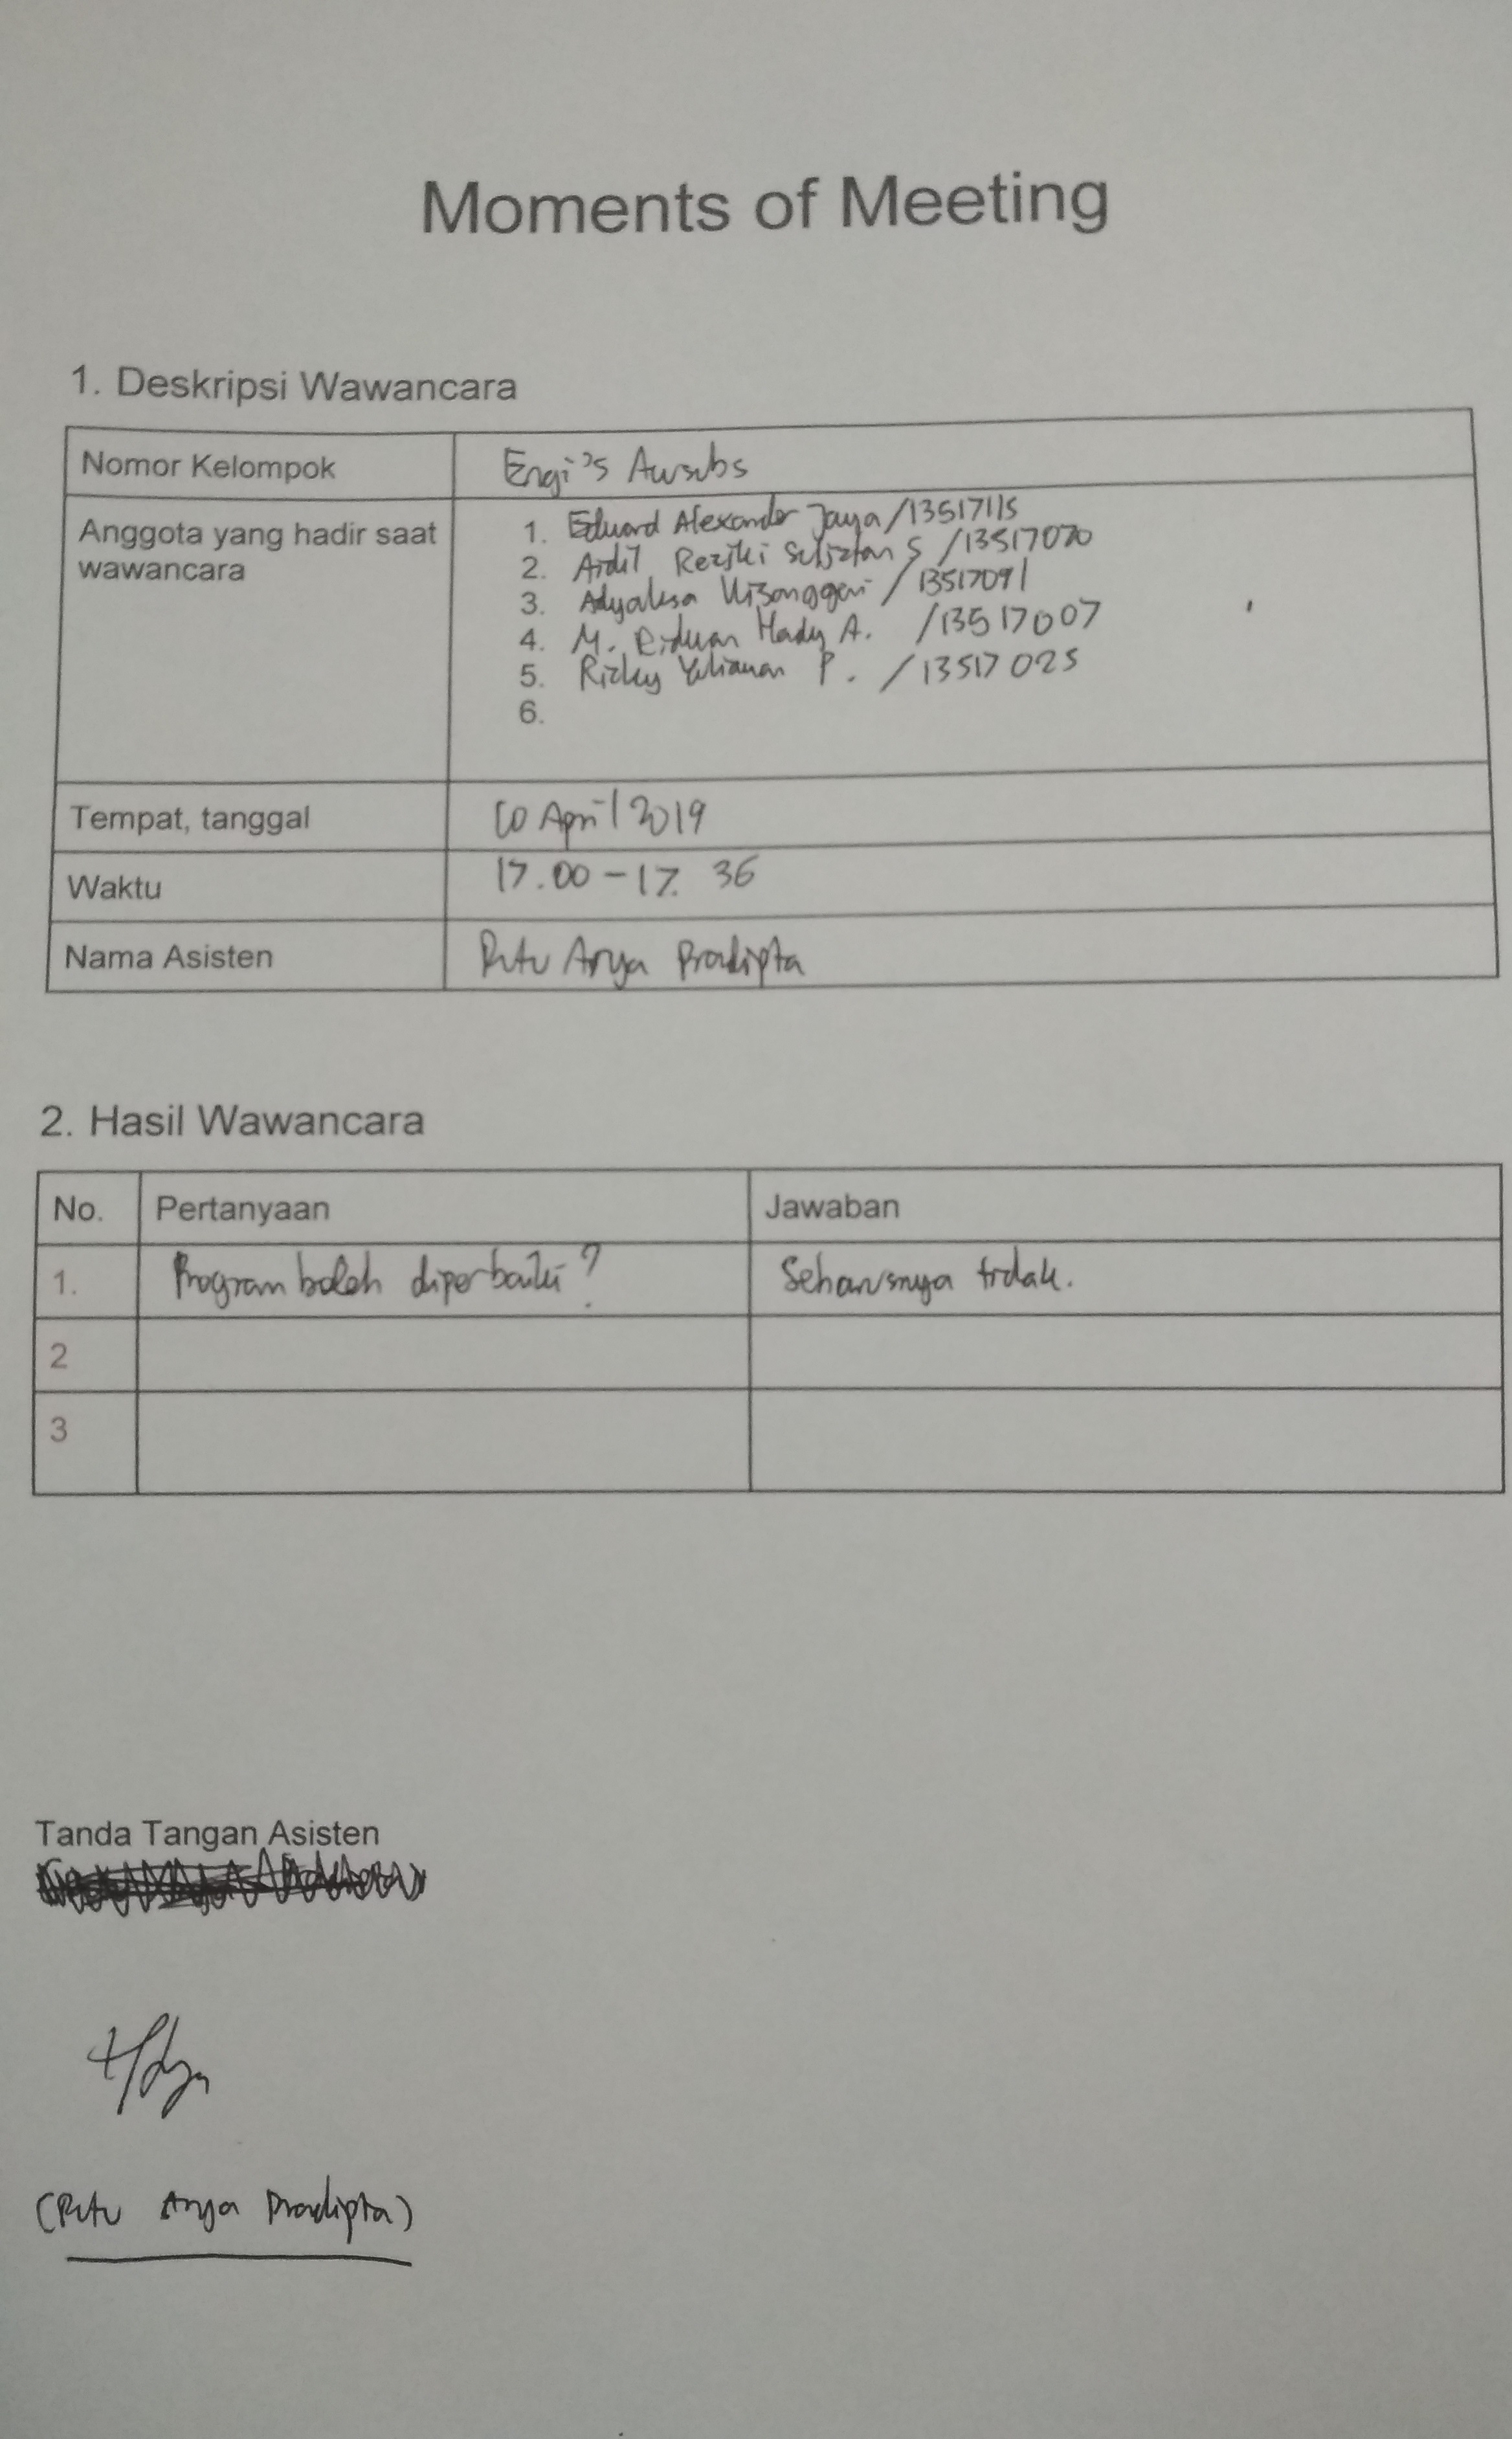 Moments of Meeting
1. Deskripsi Wawancara
Nomor Kelompok Engi's
Anggota yang hadir saat wawancara
1. Eduard Alexander Jaya /13517115
2. Ardil S /13517070
3. /13517091
4. M. Riduan Hady A. /13517007
5. Rizky Yuliawan P. /13517025
6.
Tempat, tanggal 10 April 2019
Waktu 17.00 - 17.36
Nama Asisten Putu Arya Pradipta
2. Hasil Wawancara
No. Pertanyaan Jawaban
1. Program boleh diperbaiki? Seharusnya tidak.
2
3
Tanda Tangan Asisten
(Putu Arya Pradipta)